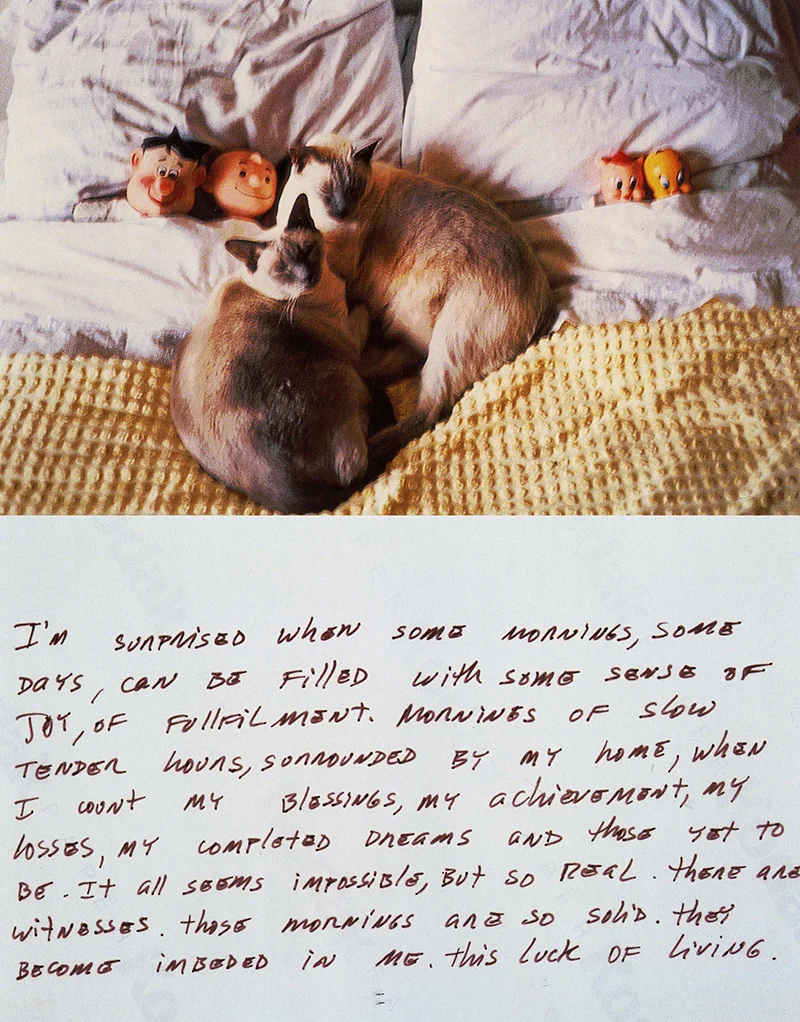 I'm surprised when some mornings, some
days, can be filled with some sense of
joy, of fullfilment. Mornings of slow
tender hours, surrounded by my home, when
I count my blessings, my achievement, my
losses, my completed dreams and those yet to
be. It all seems impossible, but so real. There are
witnesses. Those mornings are so solid. They
become imbeded in me. This luck of living.